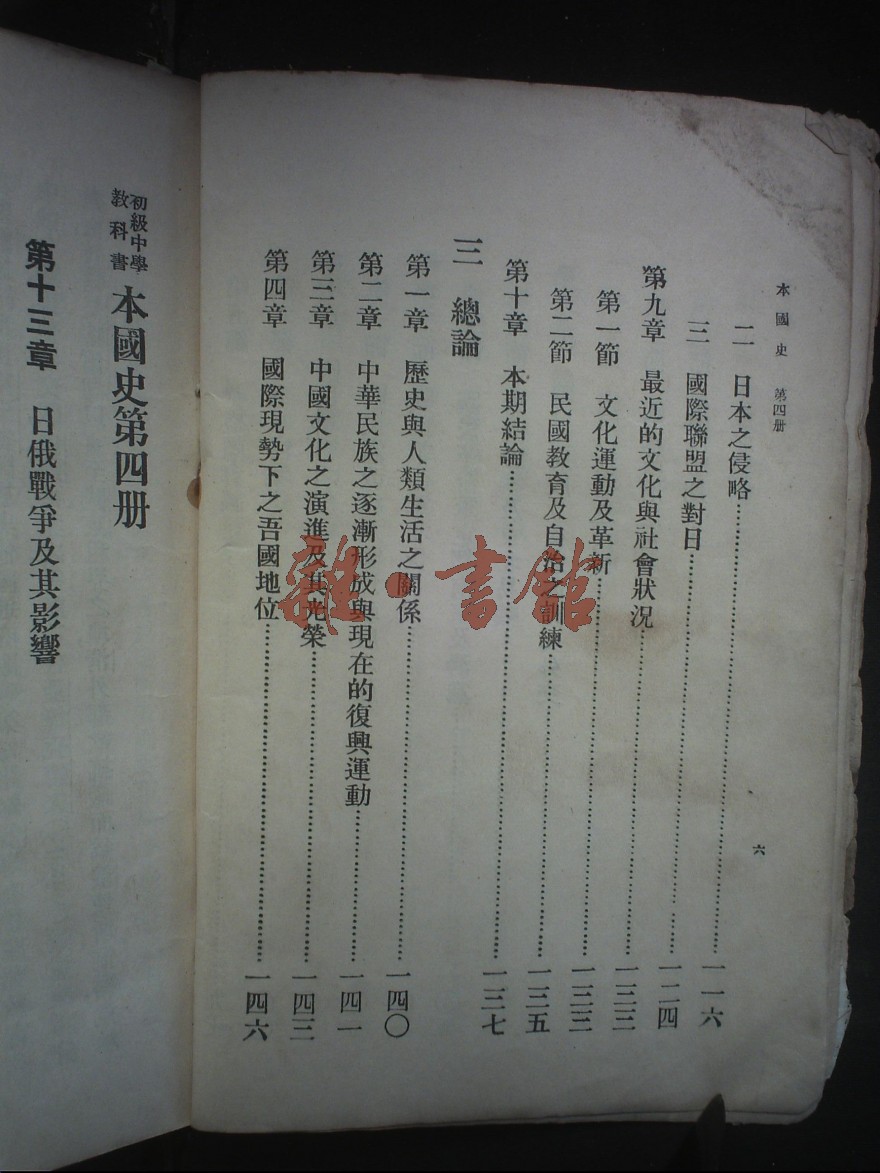 本國史 第四册
六
二 日本之侵略……一一六
三 國際聯盟之對日……一二四
第九章 最近的文化與社會狀况……一三三
第一節 文化運動及革新……一三三
第二節 民國教育及自治之訓練……一三五
第十章 本期結論……一三七
三 總論
第一章 歷史與人類生活之關係……一四〇
第二章 中華民族之逐漸形成與現在的復興運動……一四一
第三章 中國文化之演進及其光榮……一四三
第四章 國際現勢下之吾國地位……一四六
初級中學
教科書
本國史第四册
第十三章 日俄戰爭及其影響
雜·書館